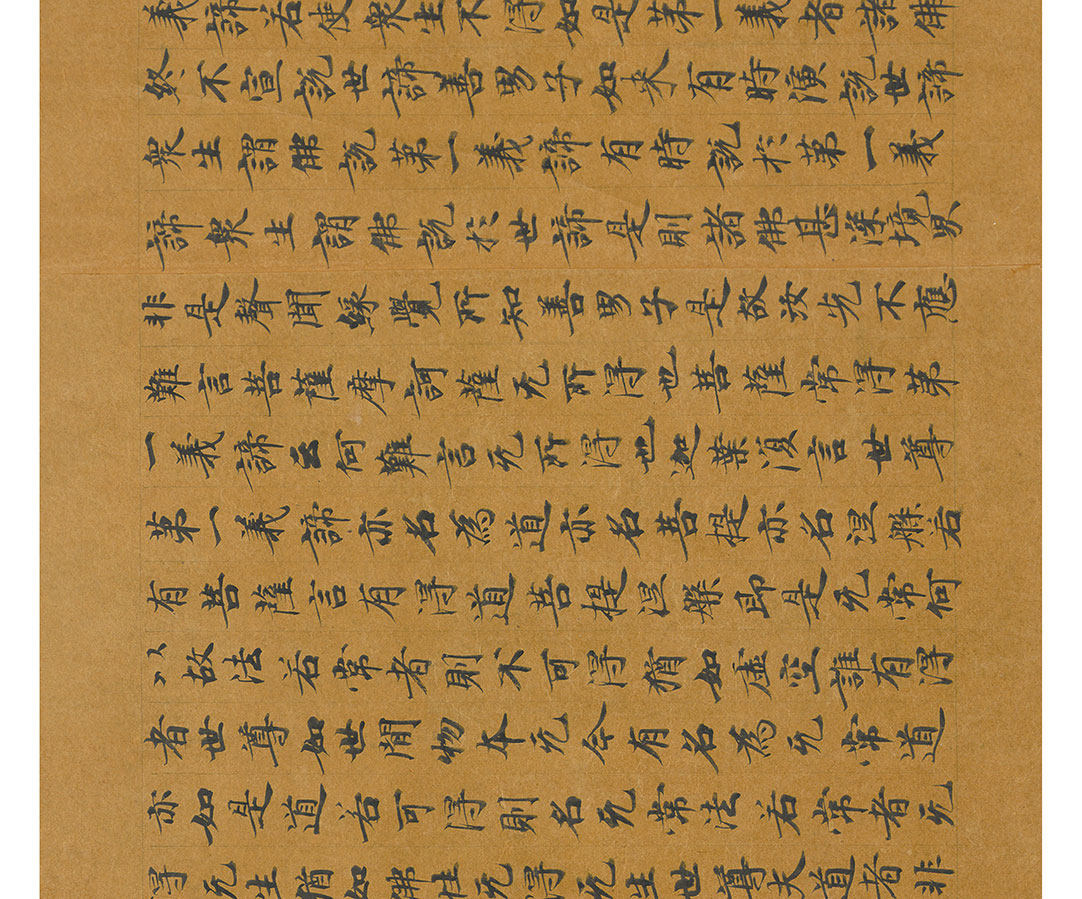 義諦若使衆生不得如是第一義者諸佛
終不宣說世諦善男子如来有時演說世諦
衆生謂佛說第一義諦有時說於第一義
諦衆生謂佛說於世諦是則諸佛甚深境界
非是聲聞緣覺所知善男子是故汝先不應
難言菩薩摩訶薩无所得也菩薩常得第
一義諦云何難言无所得也迦葉復言世尊
第一義諦亦名為道亦名菩提亦名涅槃若
有菩薩言有得道菩提涅槃即是无常何
以故法若常者則不可得猶如虛空誰有得
者世尊如世間物本无今有名為无常道
亦如是道若可得則名无常法若常者无
得无生猶如佛性无得无生世尊夫道者非